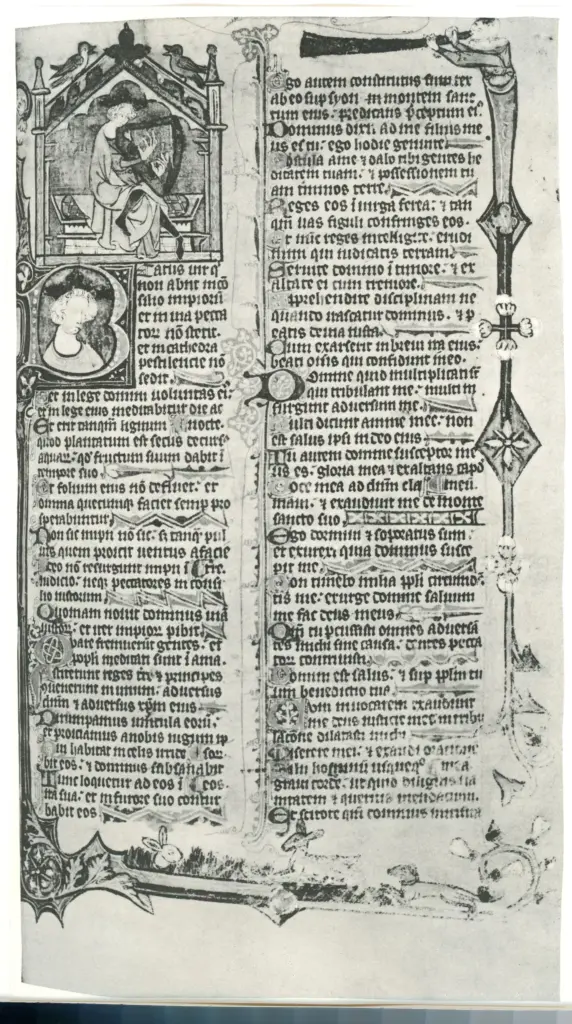 Beatus uir q'
non abiit in co
silio impiorū
et in uia pecca
tor nō stetit.
et in cathedra
pestilencie nō
sedit.
in lege domini uoluntas ei'
et in lege eius meditabitur die ac
Et erit tanqm lignum nocte.
quod plantatum est secus decurs'
aquar. qd' fructum suum dabit ī
tempore suo
Et folium eius nō defluet. et
omnia quecumq' faciet semp pro
sperabuntur
Non sic impii nō sic. s; tanq' pul
uis quem proicit uentus a facie
Ideo nō resurgunt impii ī terre.
iudicio. neq' peccatores in consi
lio iustorum
Quoniam nouit dominus uiā
iustor. et iter impior pibit
Quare fremuerunt gentes. et
popli meditati sunt ī ania.
Astiterunt reges tre et principes
conuenerunt in unum. aduersus
dnm et aduersus xpm eius
Dirumpamus uincula eorū.
et proiciamus a nobis iugum ip
Qui habitat in celis irride sor.
bit eos. et dominus subsannabit
Tunc loquetur ad eos ī eos.
ira sua. et in furore suo contur
babit eos
Ego autem constitutus sum rex
ab eo sup syon in montem sanc
tum eius. predicans preceptum ei'.
Dominus dixit ad me filius me
us es tu. ego hodie genui te
Postula a me et dabo tibi gentes he
ditatem tuam. et possessionem tu
am tminos terre.
Reges eos ī uirga ferea. et tan
qm uas figuli confringes eos.
Et nūc reges intelligite. erudi
mini qui iudicatis terram.
Seruite domino ī timore. et ex
ultate ei cum tremore.
Apprehendite disciplinam ne
quando irascatur dominus. et p
eatis de uia iusta.
Cum exarserit in breui ira eius.
beati oms qui confidunt in eo.
Domine quid multiplicati st
qui tribulant me. multi in
surgunt aduersum me.
Multi dicunt anime mee. non
est salus ipsi in deo eius
Tu autem domine susceptor me
us es. gloria mea et exaltans capd
Voce mea ad dnm cla meū.
maui. et exaudiuit me de monte
sancto suo
Ego dormiui et soporatus sum.
et exurexi quia dominus susce
pit me
Non timebo milia ppli circūdā
tis me. exurge domine saluum
me fac deus meus
Qm tu pcussisti omnes aduersā
tes michi sine causa. dentes pecca
tor contriuisti.
Domini est salus. et sup pplm tu
um benedictio tua
Cum inuocarem exaudiuit
me deus iusticie mee in tribu
lacione dilatasti michi
Miserere mei. et exaudi orationē
Filii hominū usqueq' mea
graui corde. ut quid diligitis ua
nitatem et queritis mendacium.
Et scitote qm dominus